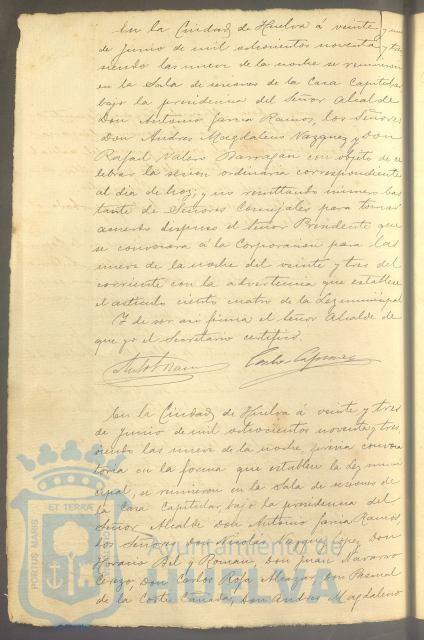 En la Ciudad de Huelva á veinte y uno
de Junio de mil ochocientos noventa y tres
siendo las nueve de la noche se reunieron
en la Sala de sesiones de la Casa Capitular
bajo la presidencia del Señor Alcalde
Don Antonio García Ramos, los Señores
Don Andres Magdaleno Vazquez y Don
Rafael Valero Barragan con objeto de ce
lebrar la sesion ordinaria correspondiente
al dia de hoy; y no resultando número bas
tante de Señores Concejales para tomar
acuerdo dispuso el Señor Presidente que
se convocara á la Corporacion para las
nueve de la noche del veinte y tres del
corriente con la advertencia que establece
el artículo ciento cuatro de la Ley municipal
Y de ser así firma el Señor Alcalde de
que yo el Secretario certifico.
En la Ciudad de Huelva á veinte y tres
de Junio de mil ochocientos noventa y tres,
siendo las nueve de la noche, prévia convoca
toria en la forma que establece la Ley muni
cipal, se reunieron en la Sala de sesiones de
la Casa Capitular, bajo la presidencia del
Señor Alcalde Don Antonio García Ramos,
los Señores Don Nicolás Vazquez Lopez, Don
Horacio Bel y Roman, Don Juan Navarro
Don Carlos Rofa Don Pascual
de la Corte Don Andres Magdaleno
PORTUS MARIS ET TERRAE
Ayuntamiento de
HUELVA